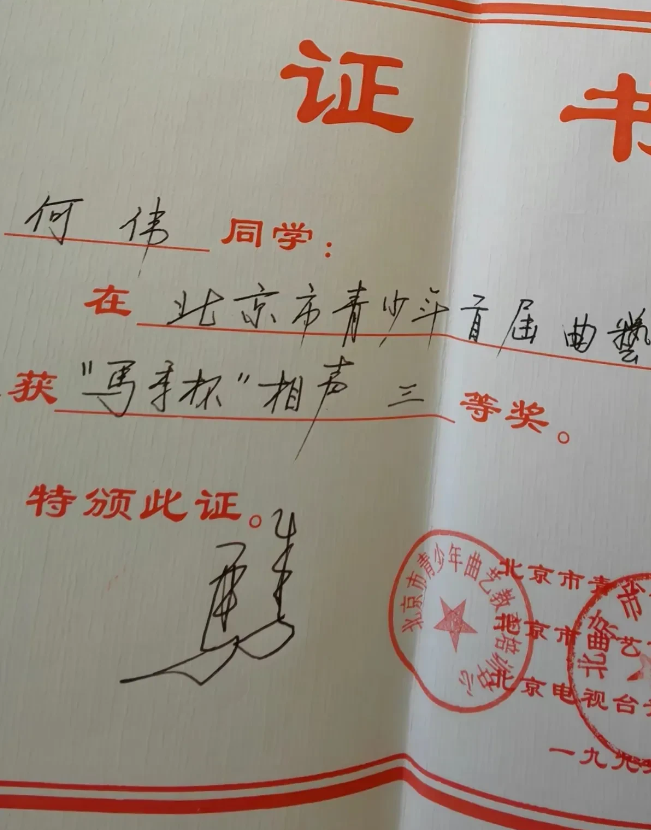 证 书
何伟 同学：
在 北京市青少年首届曲藝
获“马季杯”相声 三 等奖。
特颁此证。
北京市青少年曲艺教育培训中心
北京市青
北京市曲艺
北京电视台
一九九